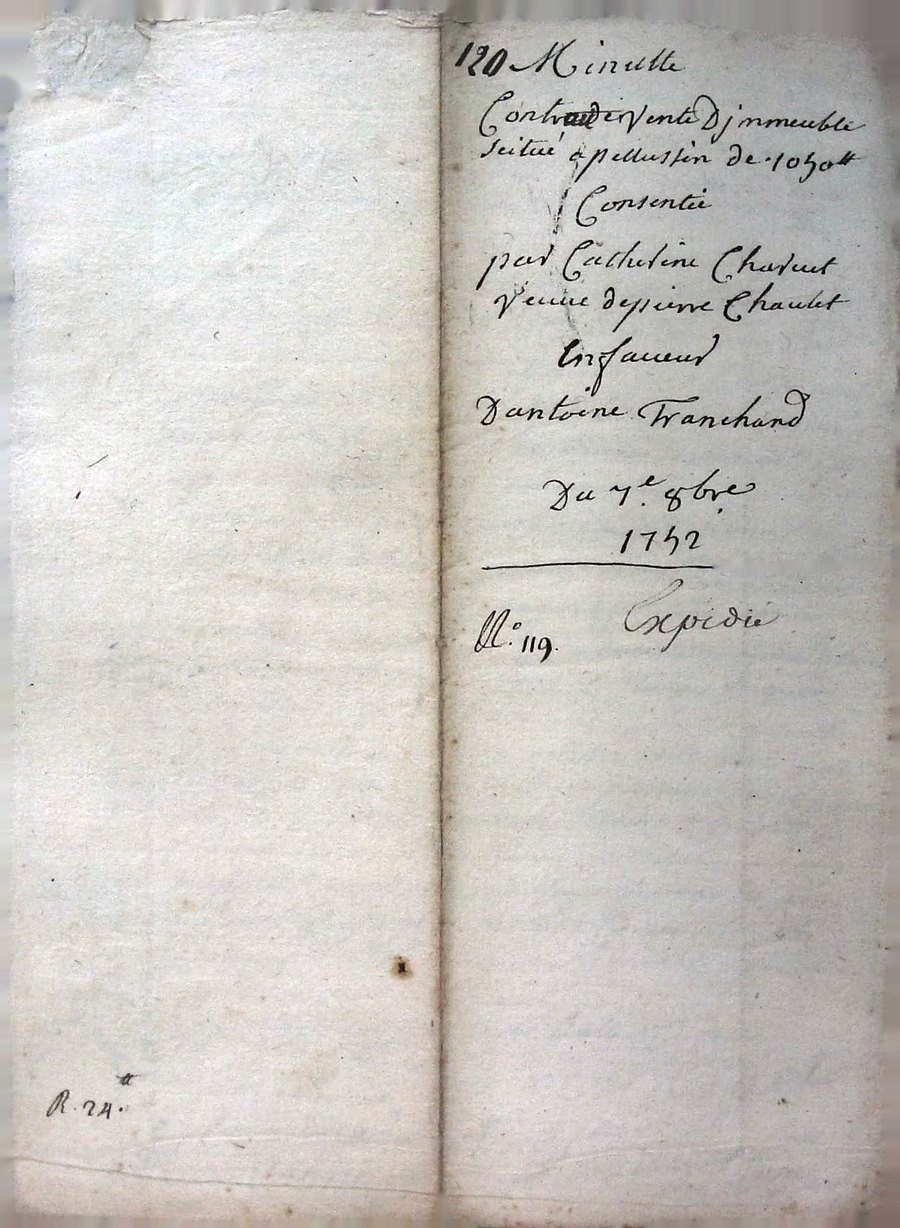 120 Minutte
Contract de vente Djmmeuble
scitué a pellussin de 1050 ₶
Consentie
par Catherine Charuet
veuue de pierre Chaulet
En faueur
Dantoine Tranchand
Du 7.e 8bre
1752
Expédié
N.o 119.
R. 24.₶